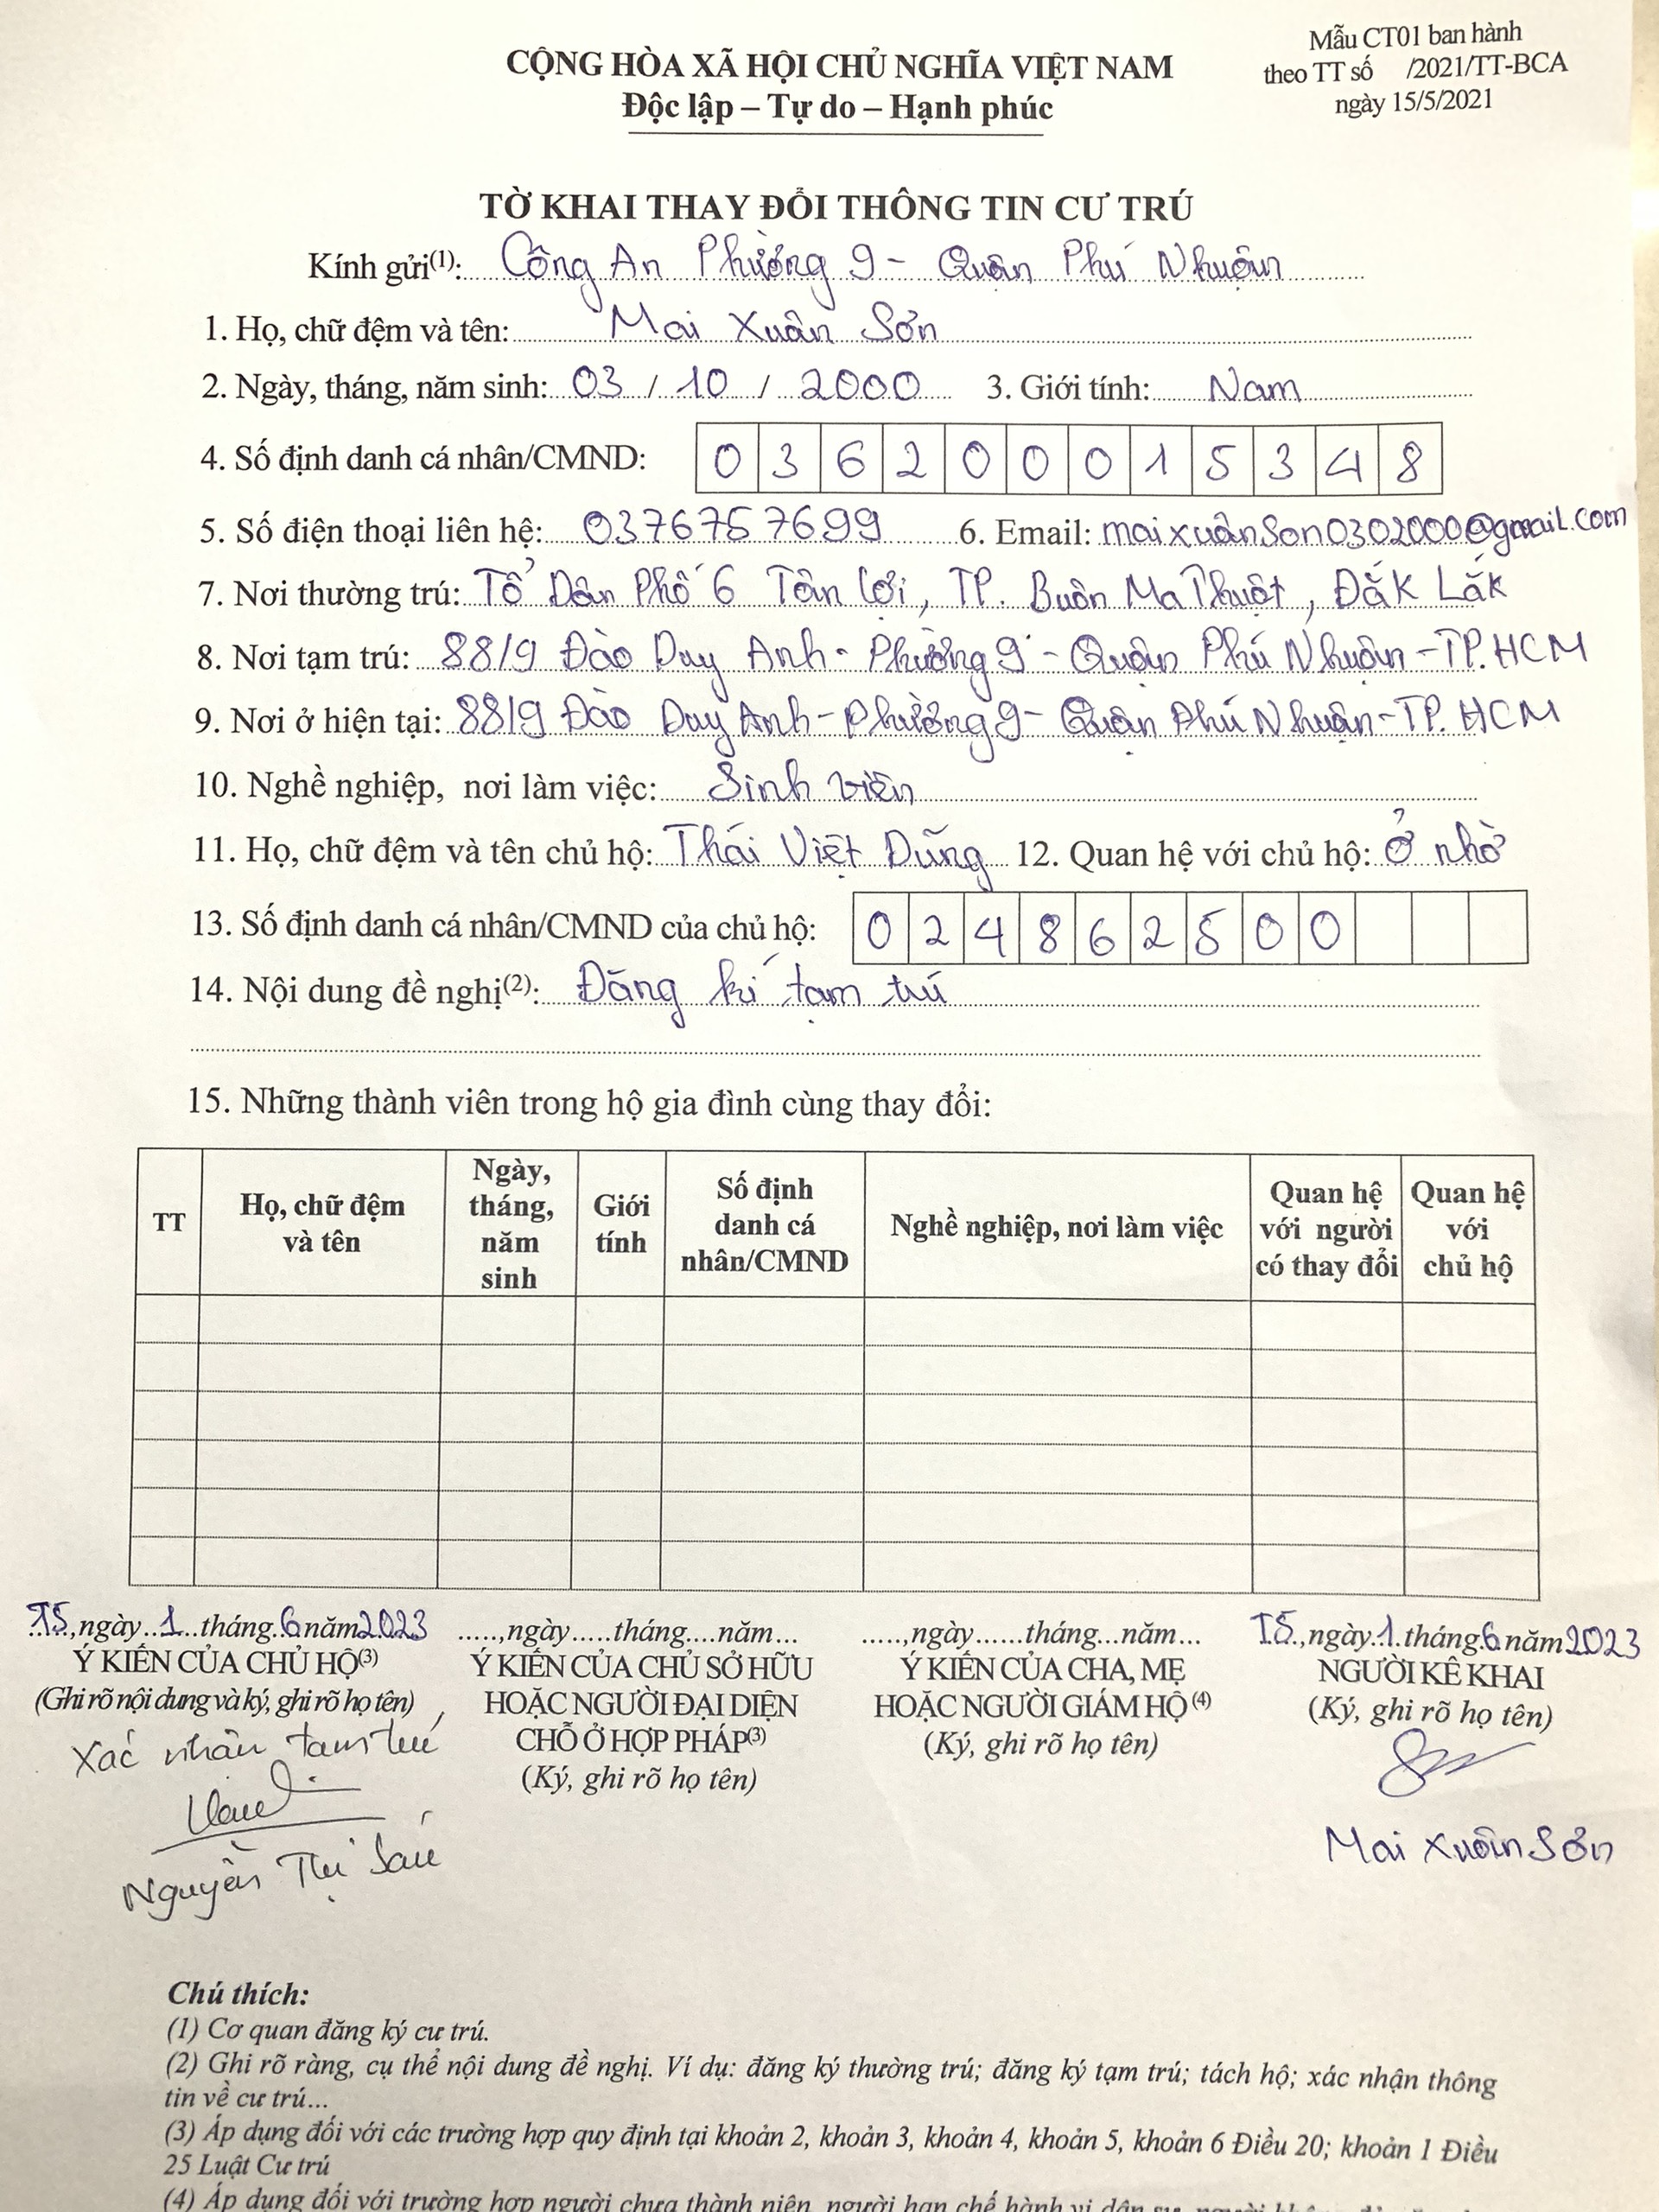 Mẫu CT01 ban hành
theo TT số /2021/TT-BCA
ngày 15/5/2021
CỘNG HÒA XÃ HỘI CHỦ NGHĨA VIỆT NAM
Độc lập – Tự do – Hạnh phúc
TỜ KHAI THAY ĐỔI THÔNG TIN CƯ TRÚ
Kính gửi(1): Công An Phường 9 - Quận Phú Nhuận
1. Họ, chữ đệm và tên: Mai Xuân Sơn
2. Ngày, tháng, năm sinh: 03 / 10 / 2000 3. Giới tính: Nam
4. Số định danh cá nhân/CMND: 036200015348
5. Số điện thoại liên hệ: 0376757699 6. Email: maixuânSon0302000@gmail.com
7. Nơi thường trú: Tổ Dân Phố 6 Tân Lợi, TP. Buôn Ma Thuột, Đắk Lắk
8. Nơi tạm trú: 88/9 Đào Duy Anh - Phường 9 - Quận Phú Nhuận - TP.HCM
9. Nơi ở hiện tại: 88/9 Đào Duy Anh - Phường 9 - Quận Phú Nhuận - TP. HCM
10. Nghề nghiệp, nơi làm việc: Sinh viên
11. Họ, chữ đệm và tên chủ hộ: Thái Việt Dũng 12. Quan hệ với chủ hộ: Ở nhờ
13. Số định danh cá nhân/CMND của chủ hộ: 024862500
14. Nội dung đề nghị(2): Đăng kí tạm trú
15. Những thành viên trong hộ gia đình cùng thay đổi:
TT Họ, chữ đệm và tên Ngày, tháng, năm sinh Giới tính Số định danh cá nhân/CMND Nghề nghiệp, nơi làm việc Quan hệ với người có thay đổi Quan hệ với chủ hộ
TS, ngày 1 tháng 6 năm 2023
Ý KIẾN CỦA CHỦ HỘ(3)
(Ghi rõ nội dung và ký, ghi rõ họ tên)
Xác nhận tạm trú
Nguyễn Thị Sáu
....., ngày.....tháng....năm...
Ý KIẾN CỦA CHỦ SỞ HỮU
HOẶC NGƯỜI ĐẠI DIỆN
CHỖ Ở HỢP PHÁP(3)
(Ký, ghi rõ họ tên)
....., ngày......tháng...năm...
Ý KIẾN CỦA CHA, MẸ
HOẶC NGƯỜI GIÁM HỘ (4)
(Ký, ghi rõ họ tên)
TS, ngày 1 tháng 6 năm 2023
NGƯỜI KÊ KHAI
(Ký, ghi rõ họ tên)
Mai Xuân Sơn
Chú thích:
(1) Cơ quan đăng ký cư trú.
(2) Ghi rõ ràng, cụ thể nội dung đề nghị. Ví dụ: đăng ký thường trú; đăng ký tạm trú; tách hộ; xác nhận thông
tin về cư trú...
(3) Áp dụng đối với các trường hợp quy định tại khoản 2, khoản 3, khoản 4, khoản 5, khoản 6 Điều 20; khoản 1 Điều
25 Luật Cư trú
(4) Áp dụng đối với trường hợp người chưa thành niên, người hạn chế hành vi dân sự, người